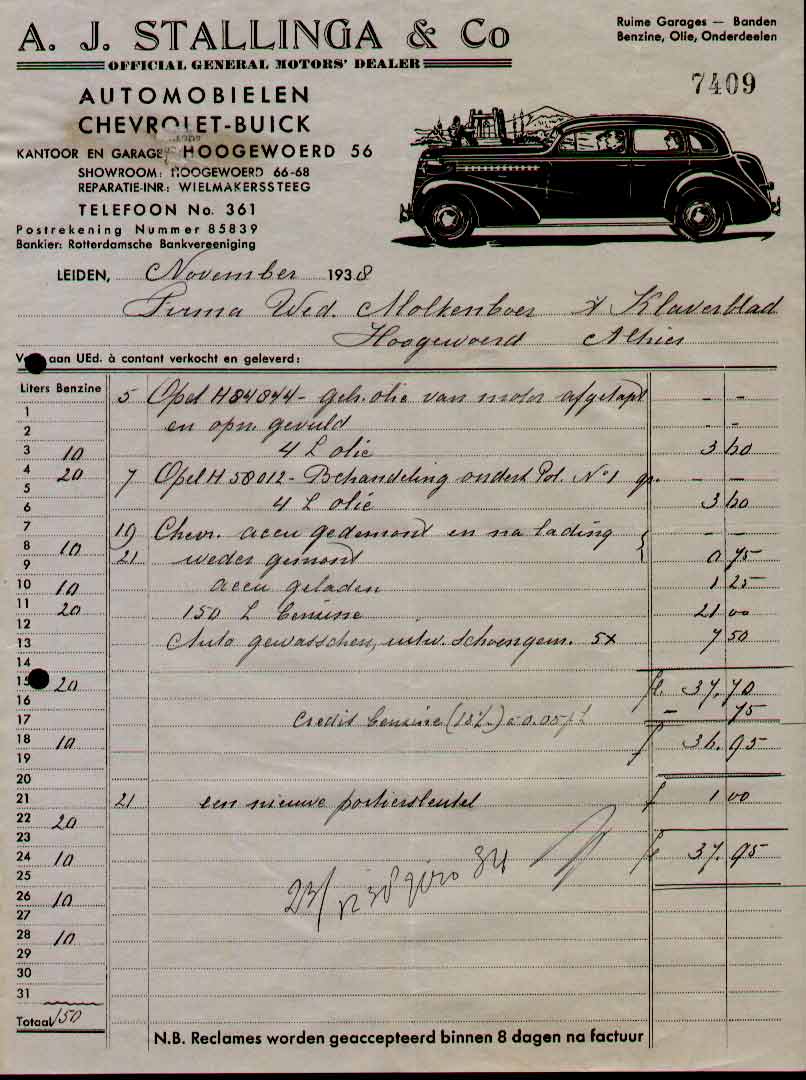 A. J. STALLINGA & Co
OFFICIAL GENERAL MOTORS' DEALER
Ruime Garages — Banden
Benzine, Olie, Onderdeelen
7409
AUTOMOBIELEN
CHEVROLET-BUICK
KANTOOR EN GARAGE: HOOGEWOERD 56
SHOWROOM: HOOGEWOERD 66-68
REPARATIE-INR: WIELMAKERSSTEEG
TELEFOON No. 361
Postrekening Nummer 85839
Bankier: Rotterdamsche Bankvereeniging
LEIDEN, November 1938
Firma Wed. Molkenboer & Klaverblad
Hoogewoerd Alhier
aan UEd. à contant verkocht en geleverd:
Liters Benzine
5 Opel H84844 - geh. olie van motor afgetapt - -
1
en opn. gevuld - -
2
3 10 4 L olie 3 60
4 20 7 Opel H 58012 - Behandeling onderh Pol. No 1 gr. - -
5
4 L olie 3 60
6
7 19 Chevr. accu gedemont en na lading - -
8 10 21 weder gemont 0 75
9
10 10 accu geladen 1 25
11 20 150 L benzine 21 00
12
13 Auto gewasschen, uitw. schoongem. 5x 7 50
14
15 20 fl. 37. 70
16
17 Credit benzine à 0.05 p L - 75
18 10 f 36. 95
19
20
21 21 een nieuwe portiersleutel f 1 00
22 20
23
24 10 fl 37. 95
25
26 10
27
28 10
29
30
31
Totaal 150
23/12 38 giro
N.B. Reclames worden geaccepteerd binnen 8 dagen na factuur